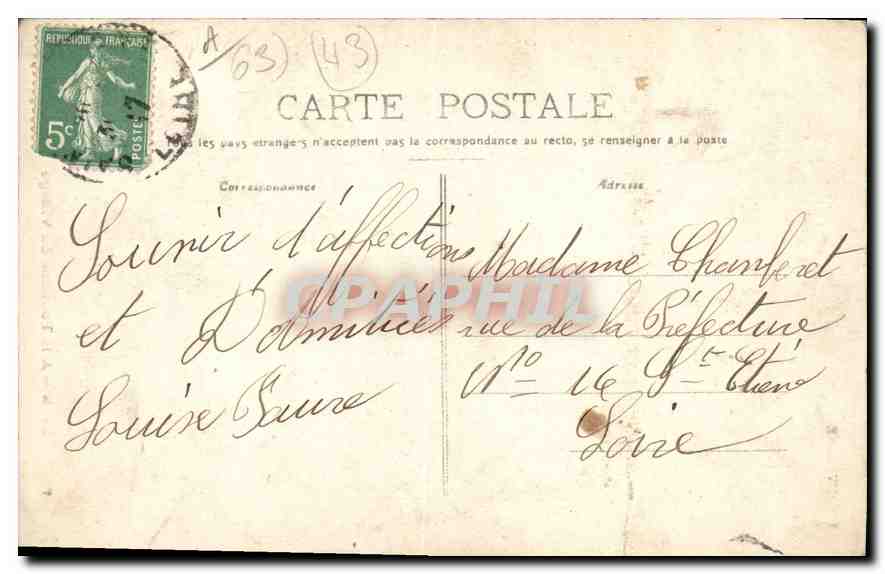 REPUBLIQUE FRANÇAISE
5c
POSTES
LOIRE
A/63)
(43)
CARTE POSTALE
les pays étrangers n'acceptent pas la correspondance au recto, se renseigner à la poste
Correspondance
Adresse
Souvenir d'affections
et D'amitiés
Louise Faure
Madame Chanferet
rue de la Préfecture
No 16 St Etiene
Loire
CPAPHIL